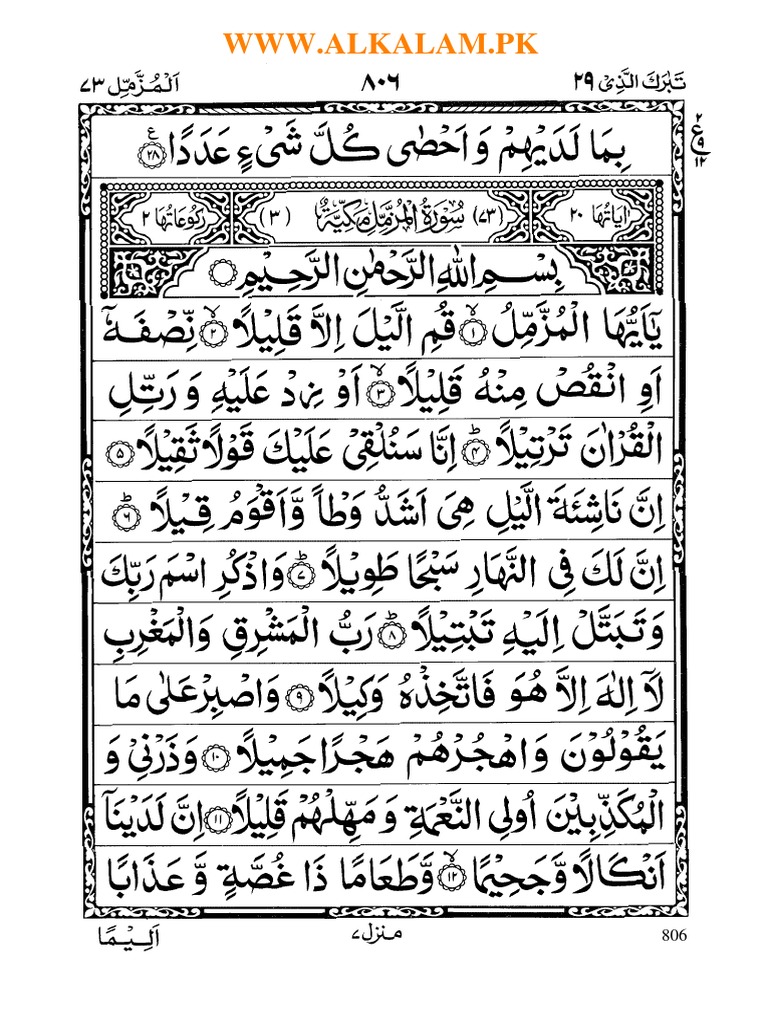 WWW.ALKALAM.PK
تَبٰرَكَ الَّذِیْ ۲۹
۸۰۶
اَلْمُزَّمِّل ۷۳
بِمَا لَدَیْهِمْ وَ اَحْصٰی كُلَّ شَیْءٍ عَدَدًا ۲۸
ع ۲ ۹ ۱۲
اٰیَاتُهَا ۲۰
(۷۳) سُوْرَةُ الْمُزَّمِّلِ مَكِّیَّةٌ (۳)
رُكُوْعَاتُهَا ۲
بِسْمِ اللّٰهِ الرَّحْمٰنِ الرَّحِیْمِ
یٰۤاَیُّهَا الْمُزَّمِّلُ ۱ قُمِ الَّیْلَ اِلَّا قَلِیْلًا ۲ نِّصْفَهٗۤ
اَوِ انْقُصْ مِنْهُ قَلِیْلًا ۳ اَوْ زِدْ عَلَیْهِ وَ رَتِّلِ
الْقُرْاٰنَ تَرْتِیْلًا ۴ اِنَّا سَنُلْقِیْ عَلَیْكَ قَوْلًا ثَقِیْلًا ۵
اِنَّ نَاشِئَةَ الَّیْلِ هِیَ اَشَدُّ وَطْاً وَّ اَقْوَمُ قِیْلًا ۶
اِنَّ لَكَ فِی النَّهَارِ سَبْحًا طَوِیْلًا ۷ وَ اذْكُرِ اسْمَ رَبِّكَ
وَ تَبَتَّلْ اِلَیْهِ تَبْتِیْلًا ۸ رَبُّ الْمَشْرِقِ وَ الْمَغْرِبِ
لَاۤ اِلٰهَ اِلَّا هُوَ فَاتَّخِذْهُ وَكِیْلًا ۹ وَ اصْبِرْ عَلٰی مَا
یَقُوْلُوْنَ وَ اهْجُرْهُمْ هَجْرًا جَمِیْلًا ۱۰ وَ ذَرْنِیْ وَ
الْمُكَذِّبِیْنَ اُولِی النَّعْمَةِ وَ مَهِّلْهُمْ قَلِیْلًا ۱۱ اِنَّ لَدَیْنَاۤ
اَنْكَالًا وَّ جَحِیْمًا ۱۲ وَّ طَعَامًا ذَا غُصَّةٍ وَّ عَذَابًا
اَلِیْمًا
منزل ۷
806